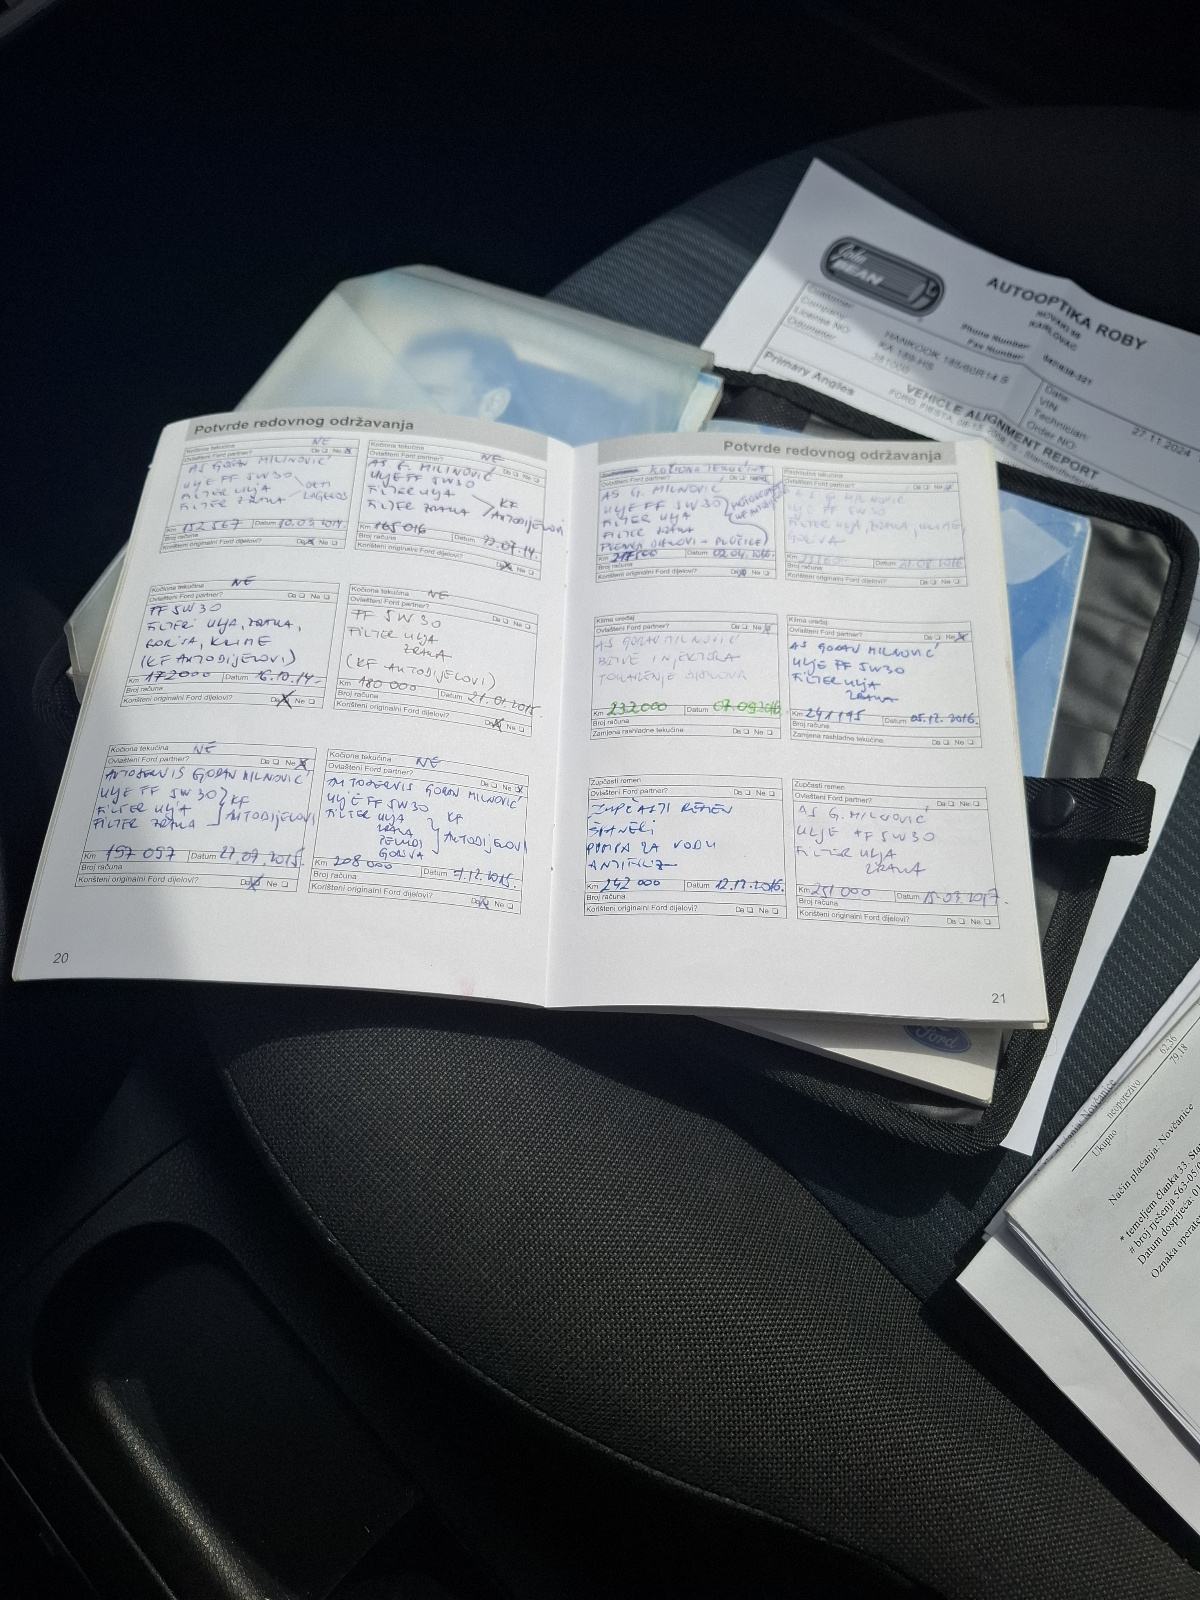 John
BEAN
AUTOOPTIKA ROBY
KARLOVAC
Phone Number
Fax Number
Customer:
Company:
License NO:
Odometer:
HANKOOK 185/60R14 S
KA 189-HS
381000
Date:
VIN:
Technician:
Order NO:
27.11.2024
VEHICLE ALIGNMENT REPORT
Primary Angles
Potvrde redovnog održavanja
Kočiona tekućina NE
Ovlašteni Ford partner? Da Ne
AS GORAN MILINOVIĆ
ULJE FF 5W30
FILTER ULJA
FILTER ZRAKA
Km 152 567 Datum 10.03.2014.
Broj računa
Korišteni originalni Ford dijelovi? Da Ne
Kočiona tekućina NE
Ovlašteni Ford partner? Da Ne
AS G. MILINOVIĆ
ULJE FF 5W30
FILTER ULJA KF
FILTER ZRAKA AUTODIJELOVI
Km 165 016 Datum 22.07.14.
Broj računa
Korišteni originalni Ford dijelovi? Da Ne
Kočiona tekućina NE
Ovlašteni Ford partner? Da Ne
FF 5W30
FILTERI ULJA, ZRAKA,
GORIVA, KLIME
(KF AUTODIJELOVI)
Km 172000 Datum 16.10.14.
Broj računa
Korišteni originalni Ford dijelovi? Da Ne
Kočiona tekućina NE
Ovlašteni Ford partner? Da Ne
FF 5W30
FILTER ULJA
ZRAKA
(KF AUTODIJELOVI)
Km 180 000 Datum 21.01.2015.
Broj računa
Korišteni originalni Ford dijelovi? Da Ne
Kočiona tekućina NE
Ovlašteni Ford partner? Da Ne
AUTOSERVIS GORAN MILINOVIĆ
ULJE FF 5W30
FILTER ULJA KF
FILTER ZRAKA AUTODIJELOVI
Km 197 097 Datum 21.09.2015.
Broj računa
Korišteni originalni Ford dijelovi? Da Ne
Kočiona tekućina NE
Ovlašteni Ford partner? Da Ne
AUTOSERVIS GORAN MILINOVIĆ
ULJE FF 5W30
FILTER ULJA KF
ZRAKA AUTODIJELOVI
GORIVA
Km 208 000 Datum 7.12.2015.
Broj računa
Korišteni originalni Ford dijelovi? Da Ne
20
Potvrde redovnog održavanja
KOČIONA TEKUĆINA
Ovlašteni Ford partner?
AS G. MILINOVIĆ
ULJE FF 5W30
FILTER ULJA
FILTER ZRAKA
Km 217500 Datum 02.04.2016.
Broj računa
Korišteni originalni Ford dijelovi? Da Ne
Rashladna tekućina
Ovlašteni Ford partner? Da Ne
AS G. MILINOVIĆ
ULJE FF 5W30
FILTER ULJA, ZRAKA, KLIME,
GORIVA
Km Datum
Broj računa
Korišteni originalni Ford dijelovi? Da Ne
Klima uređaj
Ovlašteni Ford partner? Da Ne
AS GORAN MILINOVIĆ
BRTVE INJEKTORA
Km 232000 Datum 07.09.2016
Broj računa
Zamjena rashladne tekućine Da Ne
Klima uređaj
Ovlašteni Ford partner? Da Ne
AS GORAN MILINOVIĆ
ULJE FF 5W30
FILTER ULJA
ZRAKA
Km 241195 Datum 05.12.2016.
Broj računa
Zamjena rashladne tekućine Da Ne
Zupčasti remen
Ovlašteni Ford partner? Da Ne
ZUPČASTI REMEN
ŠPANERI
PUMPA ZA VODU
ANTIFRIZ
Km 242 000 Datum 12.12.2016.
Broj računa
Korišteni originalni Ford dijelovi? Da Ne
Zupčasti remen
Ovlašteni Ford partner? Da Ne
AS G. MILINOVIĆ
ULJE FF 5W30
FILTER ULJA
ZRAKA
Km 251 000 Datum 15.03.2017.
Broj računa
Korišteni originalni Ford dijelovi? Da Ne
21
Ford
62,36
neoporezivo 79,18
Ukupno
Način plaćanja: Novčanice
* temeljem članka 33. Sta
# broj rješenja 563-05/
Datum dospijeća: 01
Oznaka operate